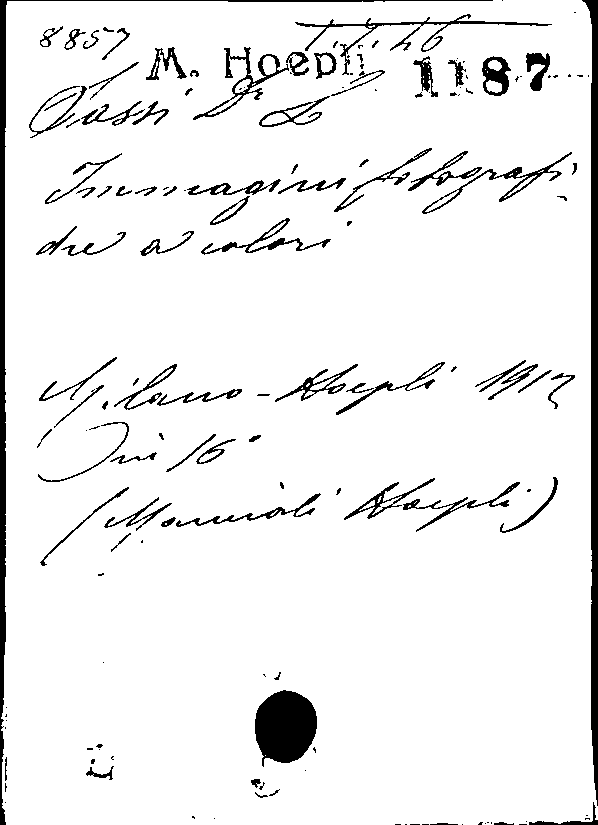 8857
M. Hoepli 1187
Sassi Dr L
Immagini fotografi-
che a colori
Milano - Hoepli 1912
In 16°
(Manuali Hoepli)